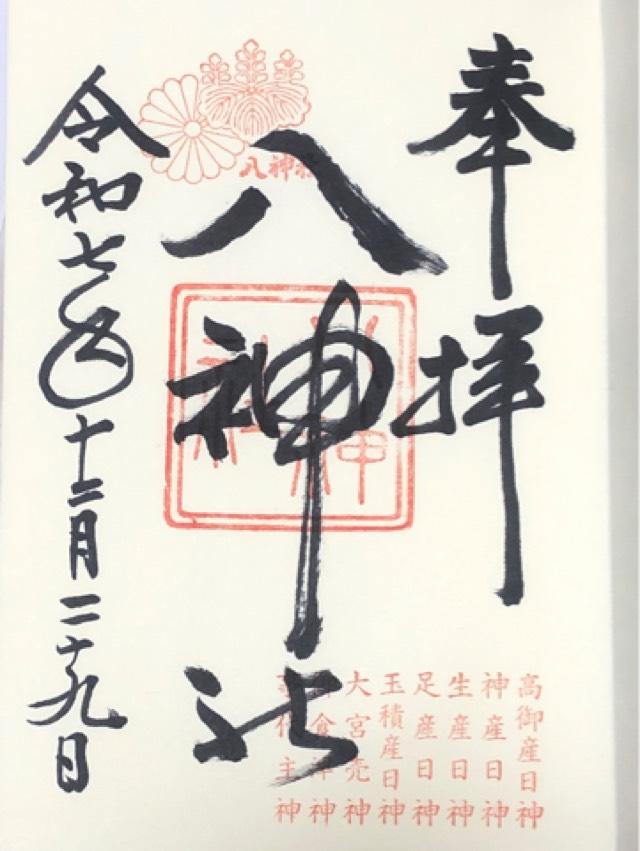 奉拝
八神社
八神社
令和七年十二月二十九日
高御産日神
神産日神
生産日神
足産日神
玉積産日神
大宮売神
食津神
代主神